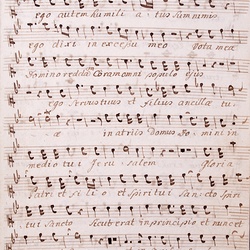 ego autem humili atus sum nimis
ego dixi in excessu meo Vota mea
Domino reddam Coram omni populo ejus
ego Servus tuus et filius ancillae tu
ae in atriis Domus Domini in
medio tui Jeru salem Gloria
Patri et Fili o et Spiritui Sancto Spiri
tui Sancto Sicut erat in principio et nunc et